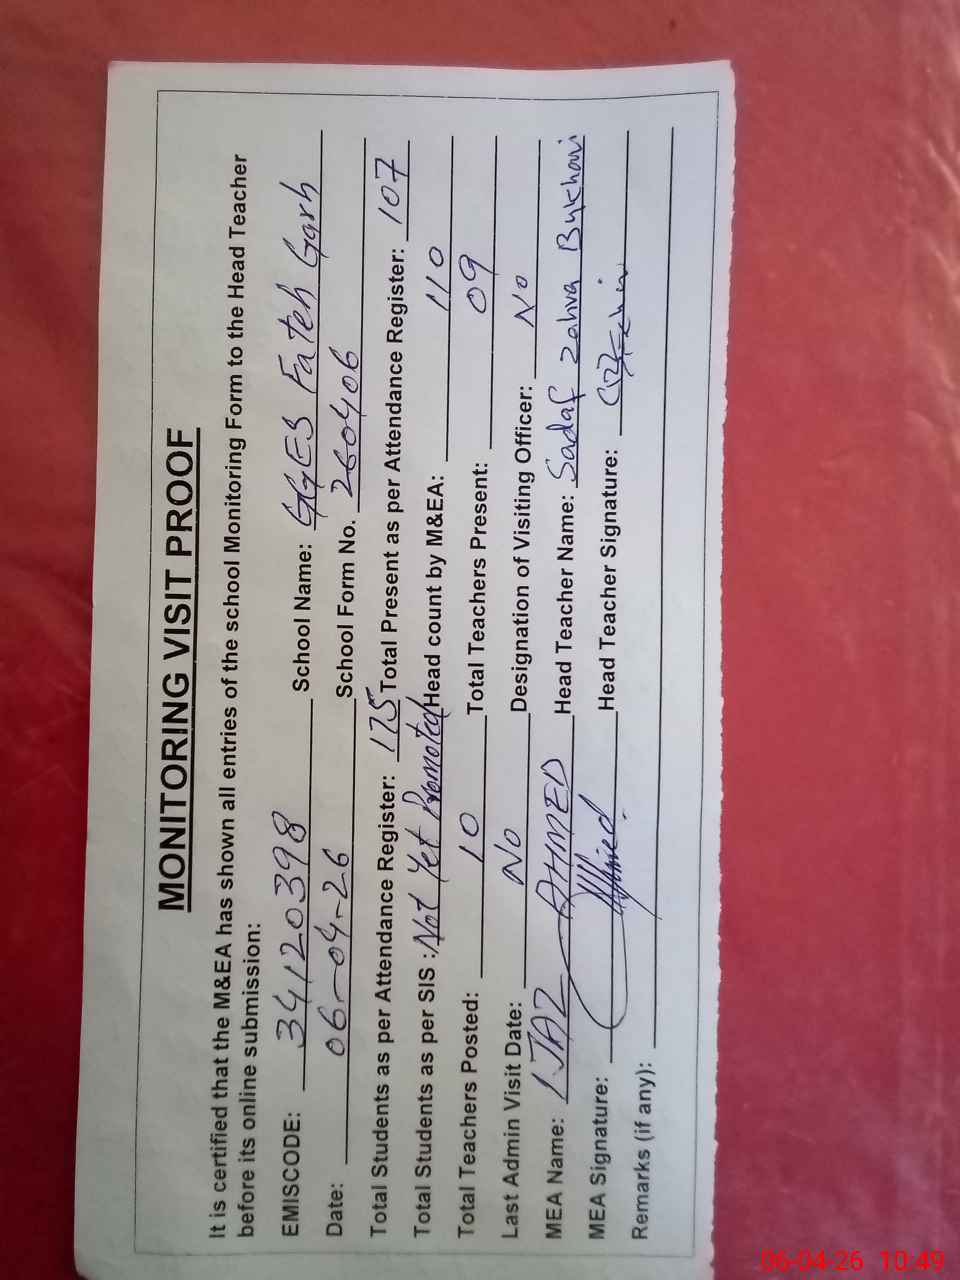 MONITORING VISIT PROOF
It is certified that the M&EA has shown all entries of the school Monitoring Form to the Head Teacher
before its online submission:
EMISCODE: 34120398 School Name: GGES Fateh Garh
Date: 06-04-26 School Form No. 260406
Total Students as per Attendance Register: 175 Total Present as per Attendance Register: 107
Total Students as per SIS : Not Yet Promoted Head count by M&EA: 110
Total Teachers Posted: 10 Total Teachers Present: 09
Last Admin Visit Date: No Designation of Visiting Officer: No
MEA Name: IJAZ AHMED Head Teacher Name: Sadaf Zahra Bukhari
MEA Signature: Head Teacher Signature:
Remarks (if any):
06-04-26 10:49